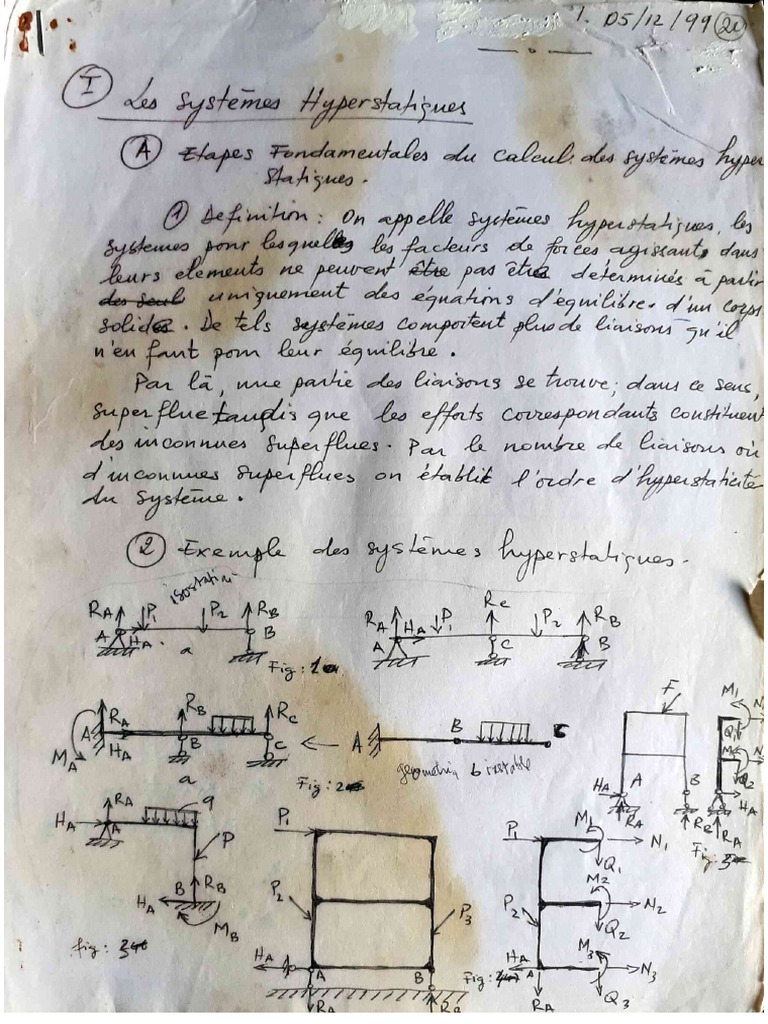 1. 05/12/99
I Les Systèmes Hyperstatiques
A Etapes Fondamentales du calcul des systèmes hyper
statiques.
1 Definition : On appelle systèmes hyperstatiques, les
systemes pour lesquelles les facteurs de forces agissants dans
leurs elements ne peuvent être pas être déterminés à partir
des seul uniquement des équations d'équilibre d'un corps
solide. De tels systèmes comportent plus de liaisons qu'il
n'en faut pour leur équilibre.
Par là, une partie des liaisons se trouve, dans ce sens,
superflue tandis que les efforts correspondants constituent
des inconnues superflues. Par le nombre de liaisons où
d'inconnues superflues on établit l'ordre d'hyperstaticité
du Système.
2 Exemple des systèmes hyperstatiques.
RA P1 P2 RB
A HA B
a
Fig: 1
RA HA P1 RC P2 RB
A C B
MA A RA HA RB B RC C
a
Fig: 2
A B
b instable
F
HA A B
RA RB
M1
Q1
Q2
HA
RA
Fig:
HA RA A q
P
HA B RB
MB
fig: 3
P1
P2 P3
HA A B
RA
P1 M1 N1
Q1
P2 M2 N2
Q2
HA A M3 N3
RA Q3
Fig: